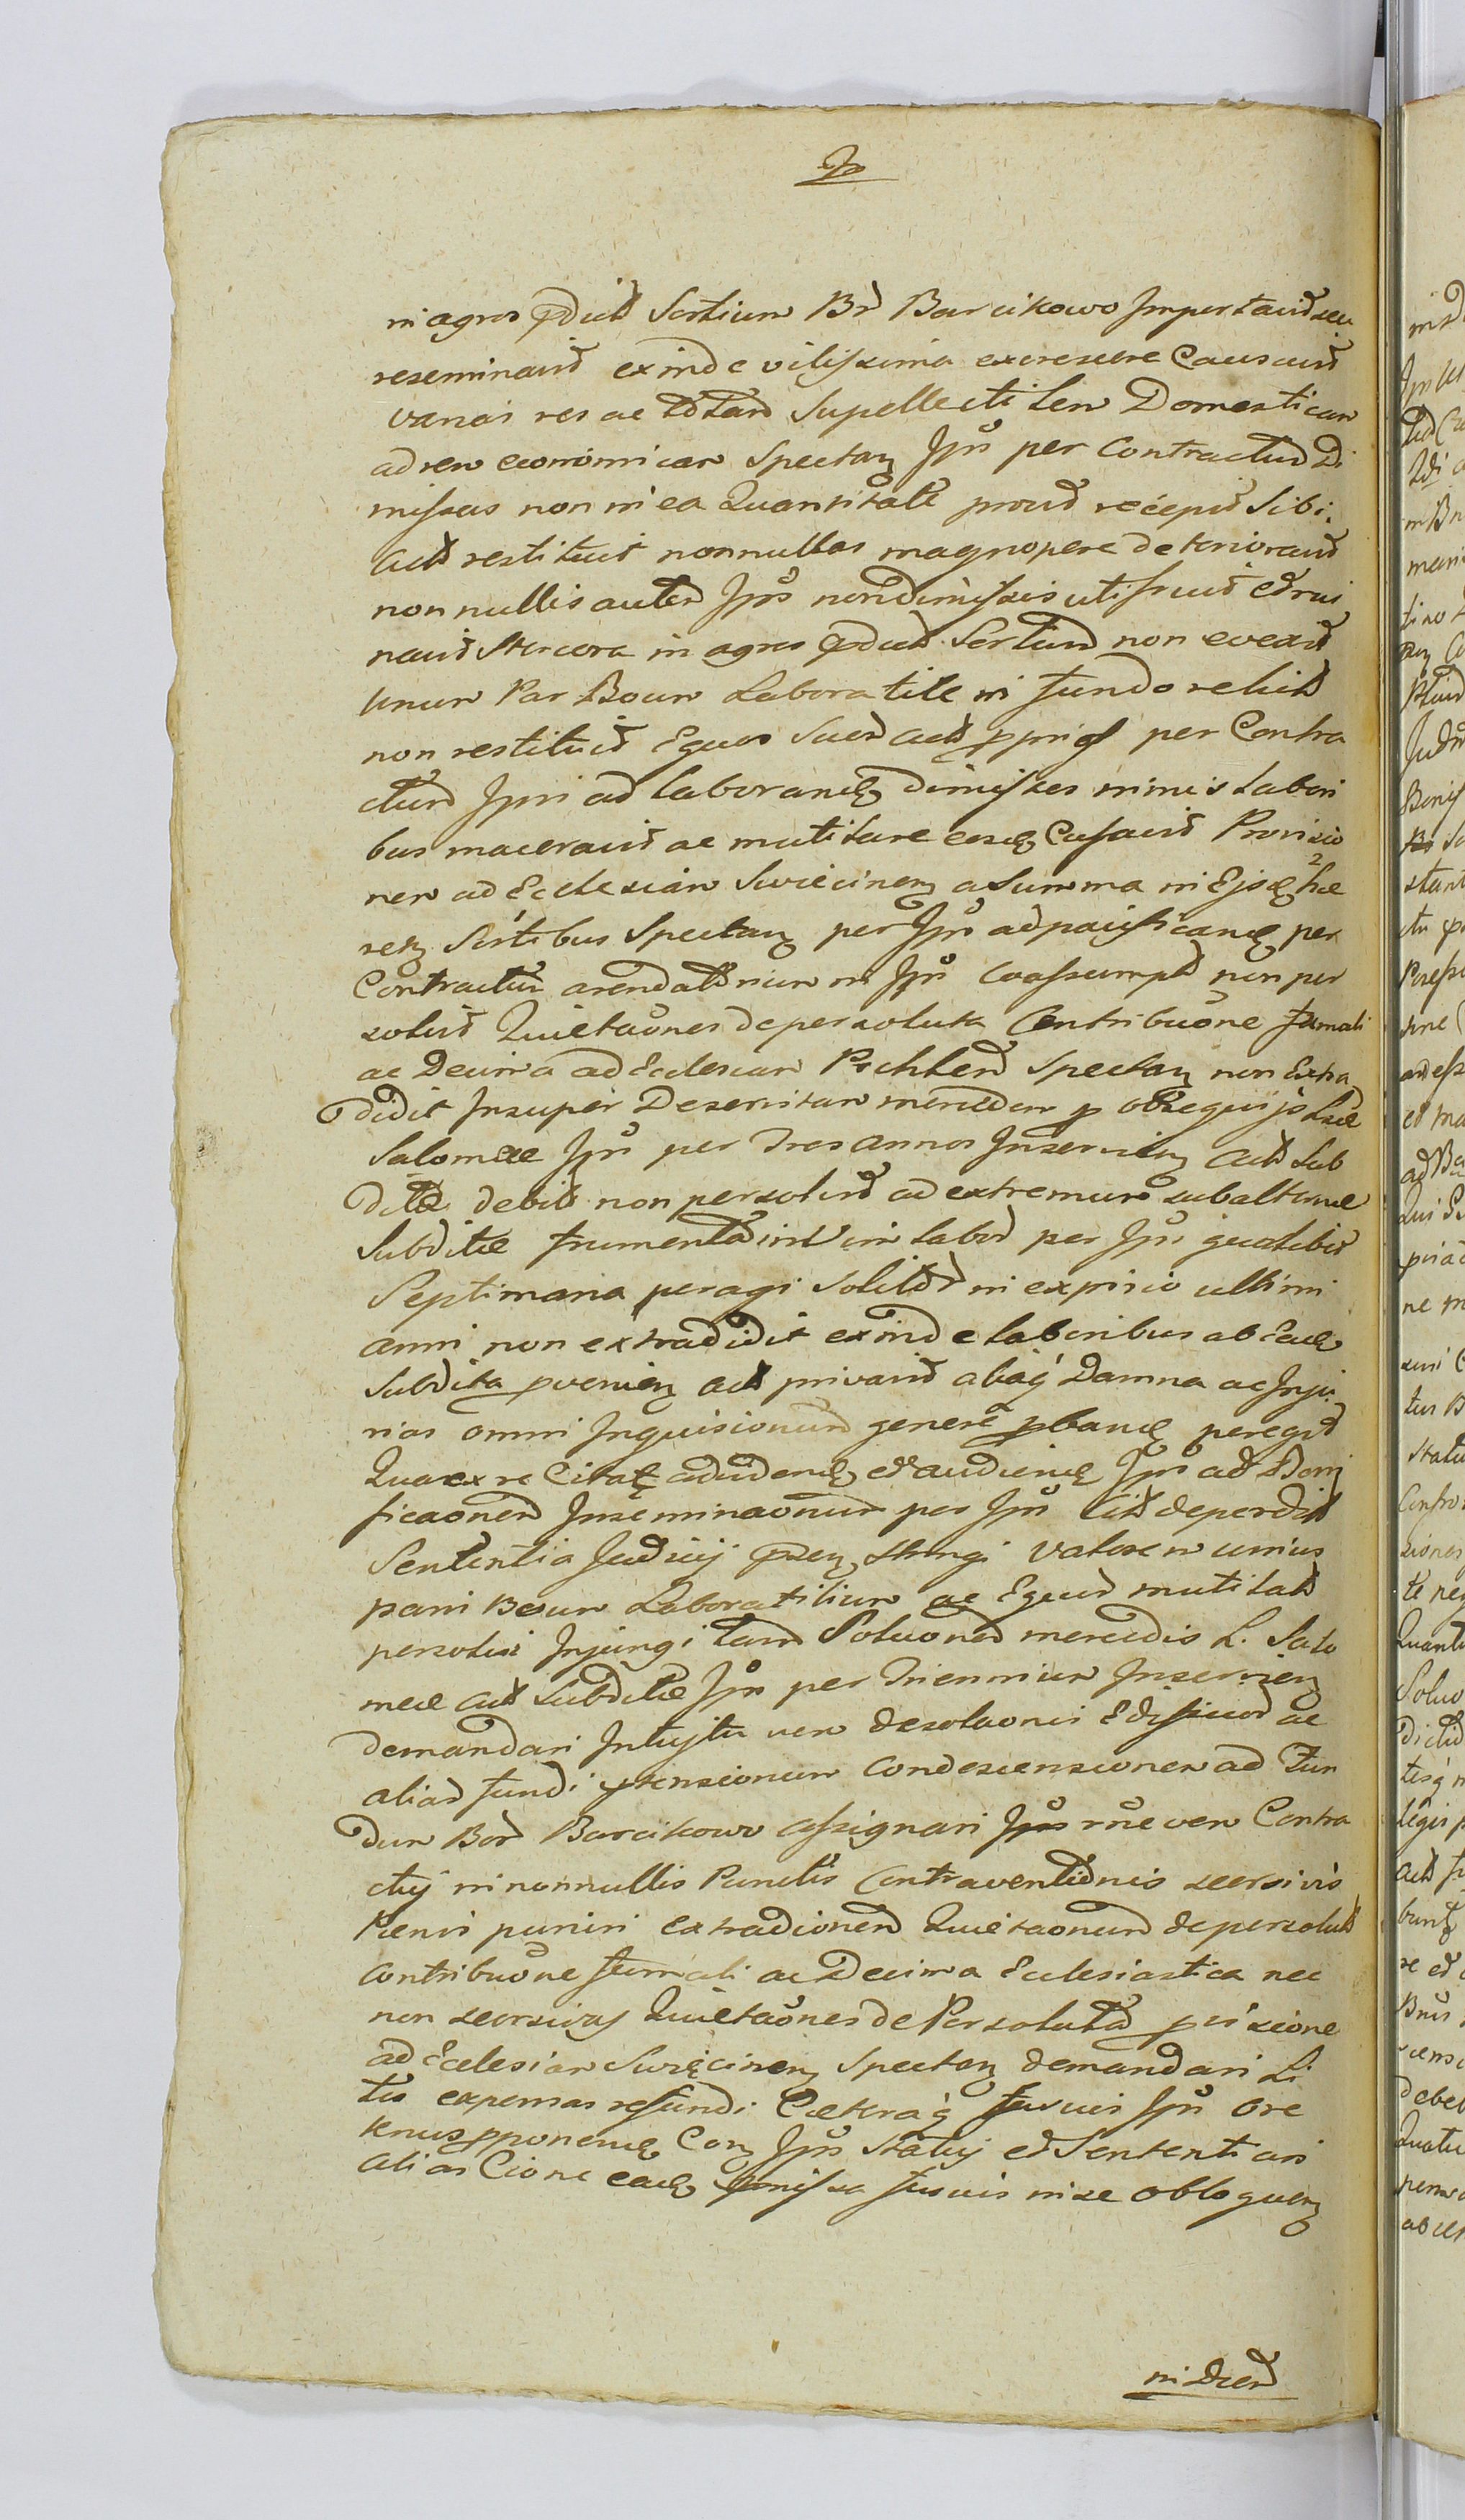 in agros pdict Sortium Br Barcikowo Importavit seu
reseminavit exinde vilissima excrescere Causavit
varias res ac totam Supellectilem Domesticam
ad rem economicam Spectan Ipsi per Contractum Di
missas non in ea Quantitate prout recepit Sibi
Act restituit nonnullas magnopere deterioravit
non nullis autem Ipsi non dimissis uti fruit et rui
navit Stercora in agros pdict Sortium non evexit
Unum Par Boum Laboratile in fundo relict
non restituit Equos Suos Act pprios per Contra
ctum Ipsi ad laborand dimissos nimis labori
bus maceravit ac mutilare eosd Causavit Provisio
nem ad Ecclesiam Swiecinen a Summa in Ejsd hae
red Sortibus Spectan per Ipsi ad pacificand per
Contractum arendatorium in Ipsi Coassumpt non per
solvit Quietaones de persoluta Contribuone fumali
ac Decima ad Ecclesiam Spectan non Extra
didit Insuper Deservitam mercedem p obsequijs Lsae
Salomeae Ipsi per Tres annos Inservien Act Sub
ditae debit non persolvit ad extremum subalternae
Subditae frumenta in Vim labor per Ipsi qualibet
Septimana peragi Solitor in expirio ultimi
anni non extradidit exinde laboribus ab Ead
Subdita pvenien Act privavit aliaq Damna ac Inju
rias omni Inquisitionum genere pband peregit
Qua ex re Citat ad vidend et audiend Ipsi ad Boni
ficaonem Inseminaonum per Ipsi Cit deperdit
Sententia Judicij psen Stringi Valorem unius
paris Boum Laboratilium ac Equor mutilat
persolvi Injungi tam Soluonem mercedis L. Salo
meae Act Subditae Ipsi per Triennium Inservien
demandari Intuitu vero desolaonis Edificior ac
aliar fundi ptensionum Condescensionem ad Fun
dum Bor Barcikowo assignari Ipsi rne vero Contra
ctuj in nonnullis Punctis Contraventionis seorsivis
Paenis puniri extradionem Quietaonum de persolut
Contribuone fumali ac Decima Ecclesiastica nec
non seorsivas Quietaones de Persoluta pvisione
ad Ecclesiam Swięcinen Spectan demandari Li
tis expensas refundi Caeteraq fusius Ipsi Ore
tenus pponend Coram Ipsi Statuj et Sententiari
alias Cione ead pmissa fusius in se obloquen
in Drem